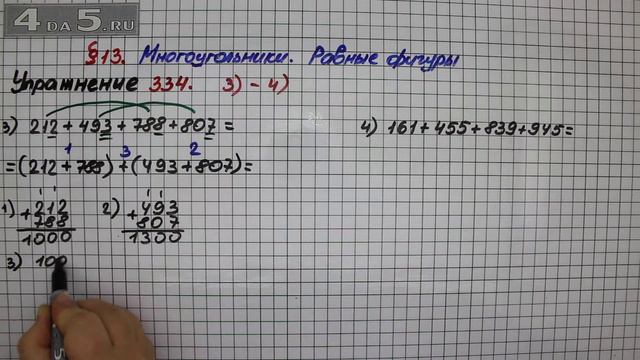 4DA5.RU
§13. Многоугольники. Равные фигуры
Упражнение 334. 3) - 4)
3) 212 + 493 + 788 + 807 =
1 3 2
= (212 + 788) + (493 + 807) =
1) 212 + 788 1000
2) 493 + 807 1300
3) 100
4) 161 + 455 + 839 + 945 =